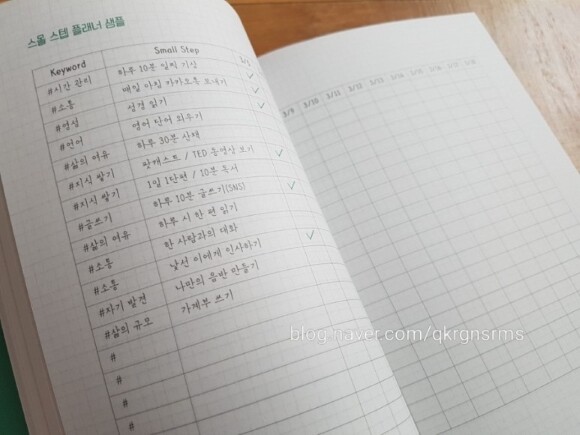 스몰 스텝 플래너 샘플
Keyword Small Step 3/1
#시간 관리 하루 10분 일찍 기상 ✓
#소통 매일 아침 카카오톡 보내기 ✓
#영성 성경 읽기 ✓
#언어 영어 단어 외우기
#삶의 여유 하루 30분 산책
#지식 쌓기 팟캐스트 / TED 동영상 보기 ✓
#지식 쌓기 1일 1단편 / 10분 독서
#글쓰기 하루 10분 글쓰기(SNS) ✓
#삶의 여유 하루 시 한 편 읽기
#소통 한 사람과의 대화
#소통 낯선 이에게 인사하기 ✓
#자기 발견 나만의 음반 만들기
#삶의 규모 가계부 쓰기
#
#
#
#
3/9 3/10 3/11 3/12 3/13 3/14 3/15 3/16
blog.naver.com/qkrgnsrms